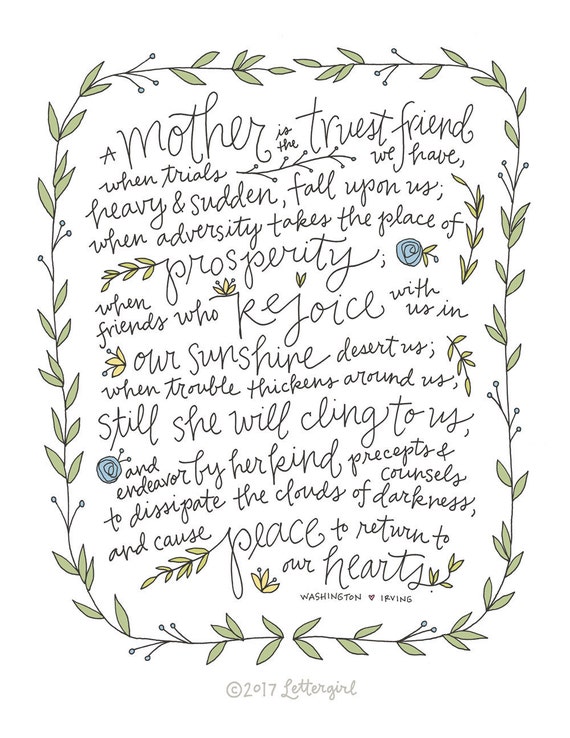 A mother is the truest friend
when trials we have,
heavy & sudden, fall upon us;
when adversity takes the place of
prosperity;
when friends who rejoice with us in
our sunshine desert us;
when trouble thickens around us,
still she will cling to us,
and endeavor by her kind precepts & counsels
to dissipate the clouds of darkness,
and cause peace to return to
our hearts.
WASHINGTON IRVING
©2017 Lettergirl